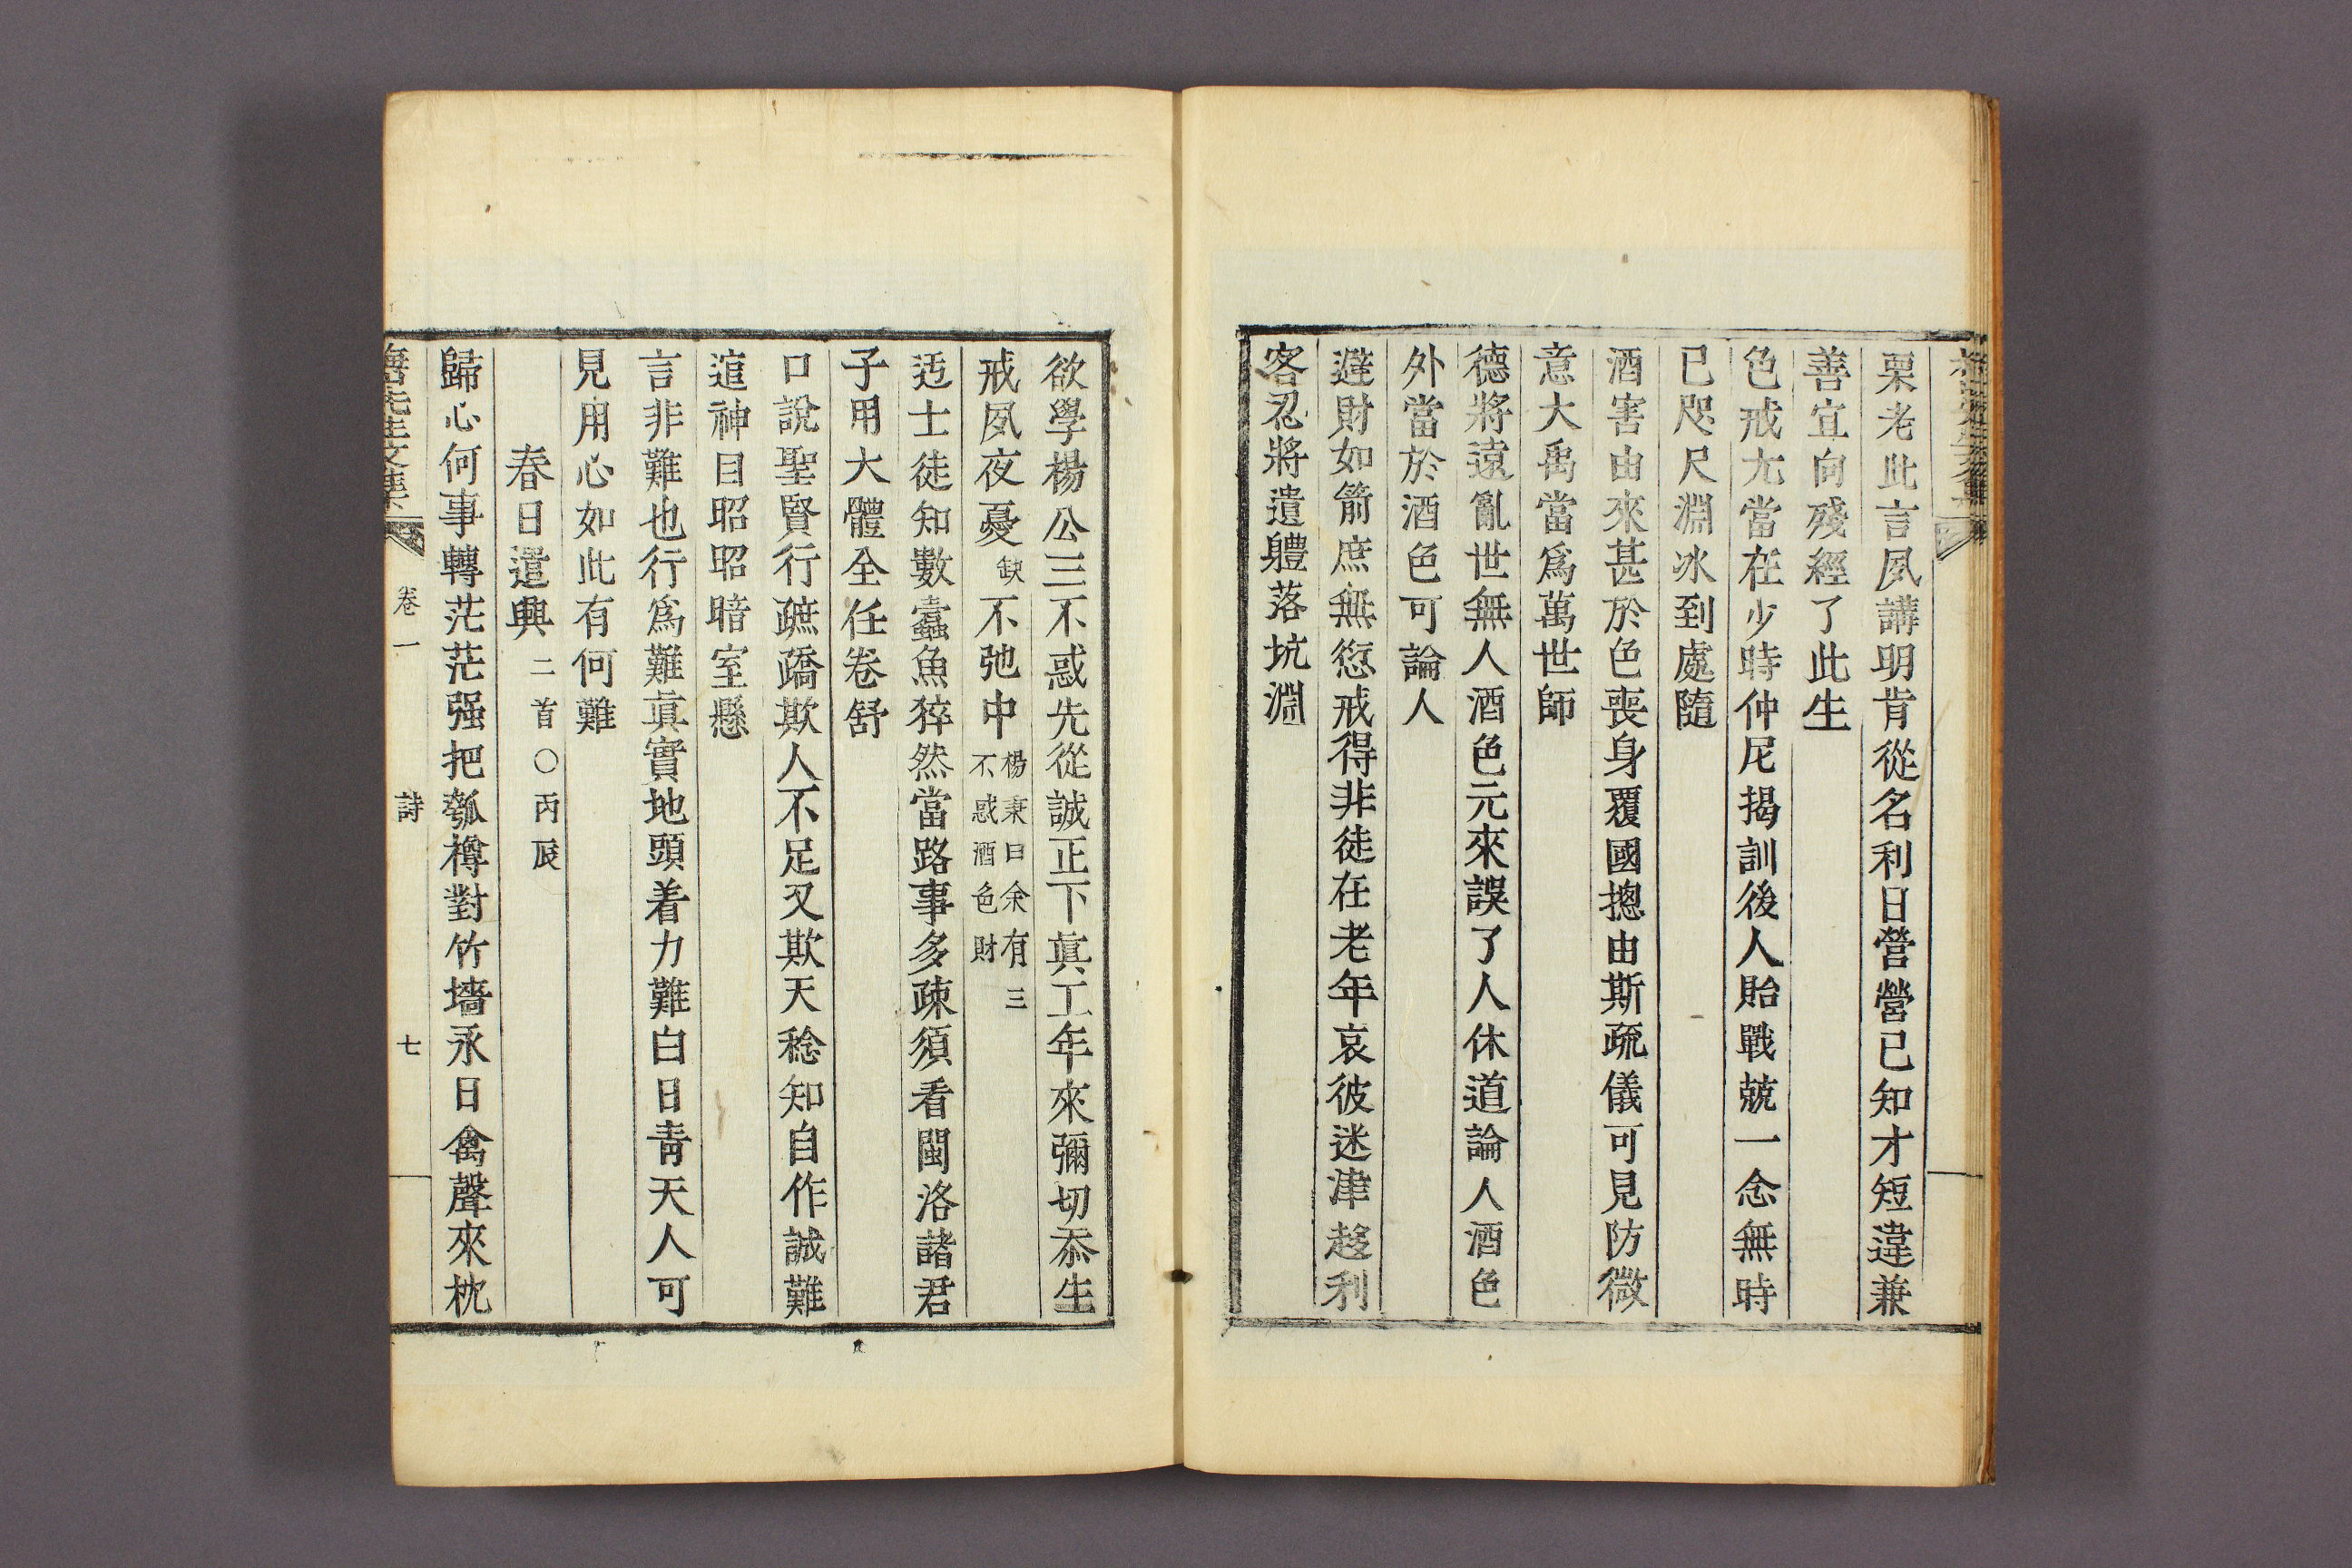 栗老此言夙講明肯從名利日營營已知才短違兼
善宜向殘經了此生
色戒尤當在少時仲尼揭訓後人貽戰兢一念無時
已咫尺淵氷到處隨
酒害由來甚於色喪身覆國摠由斯疏儀可見防微
意大禹當爲萬世師
德將遠亂世無人酒色元來誤了人休道論人酒色
外當於酒色可論人
避財如箭庶無愆戒得非徒在老年哀彼迷津趍利
客忍將遺軆落坑淵
欲學楊公三不惑先從誠正下眞工年來彌切忝生
戒夙夜憂缺不弛中楊秉曰余有三
不惑酒色財
近士徒知數蠹魚猝然當路事多疎須看閩洛諸君
子用大體全任卷舒
口說聖賢行蹠蹻欺人不足又欺天稔知自作誠難
逭神目昭昭暗室懸
言非難也行爲難眞實地頭着力難白日靑天人可
見用心如此有何難
春日遣興二首○丙辰
歸心何事轉茫茫强把瓠樽對竹墻永日禽聲來枕
先生文集 卷一 詩 七